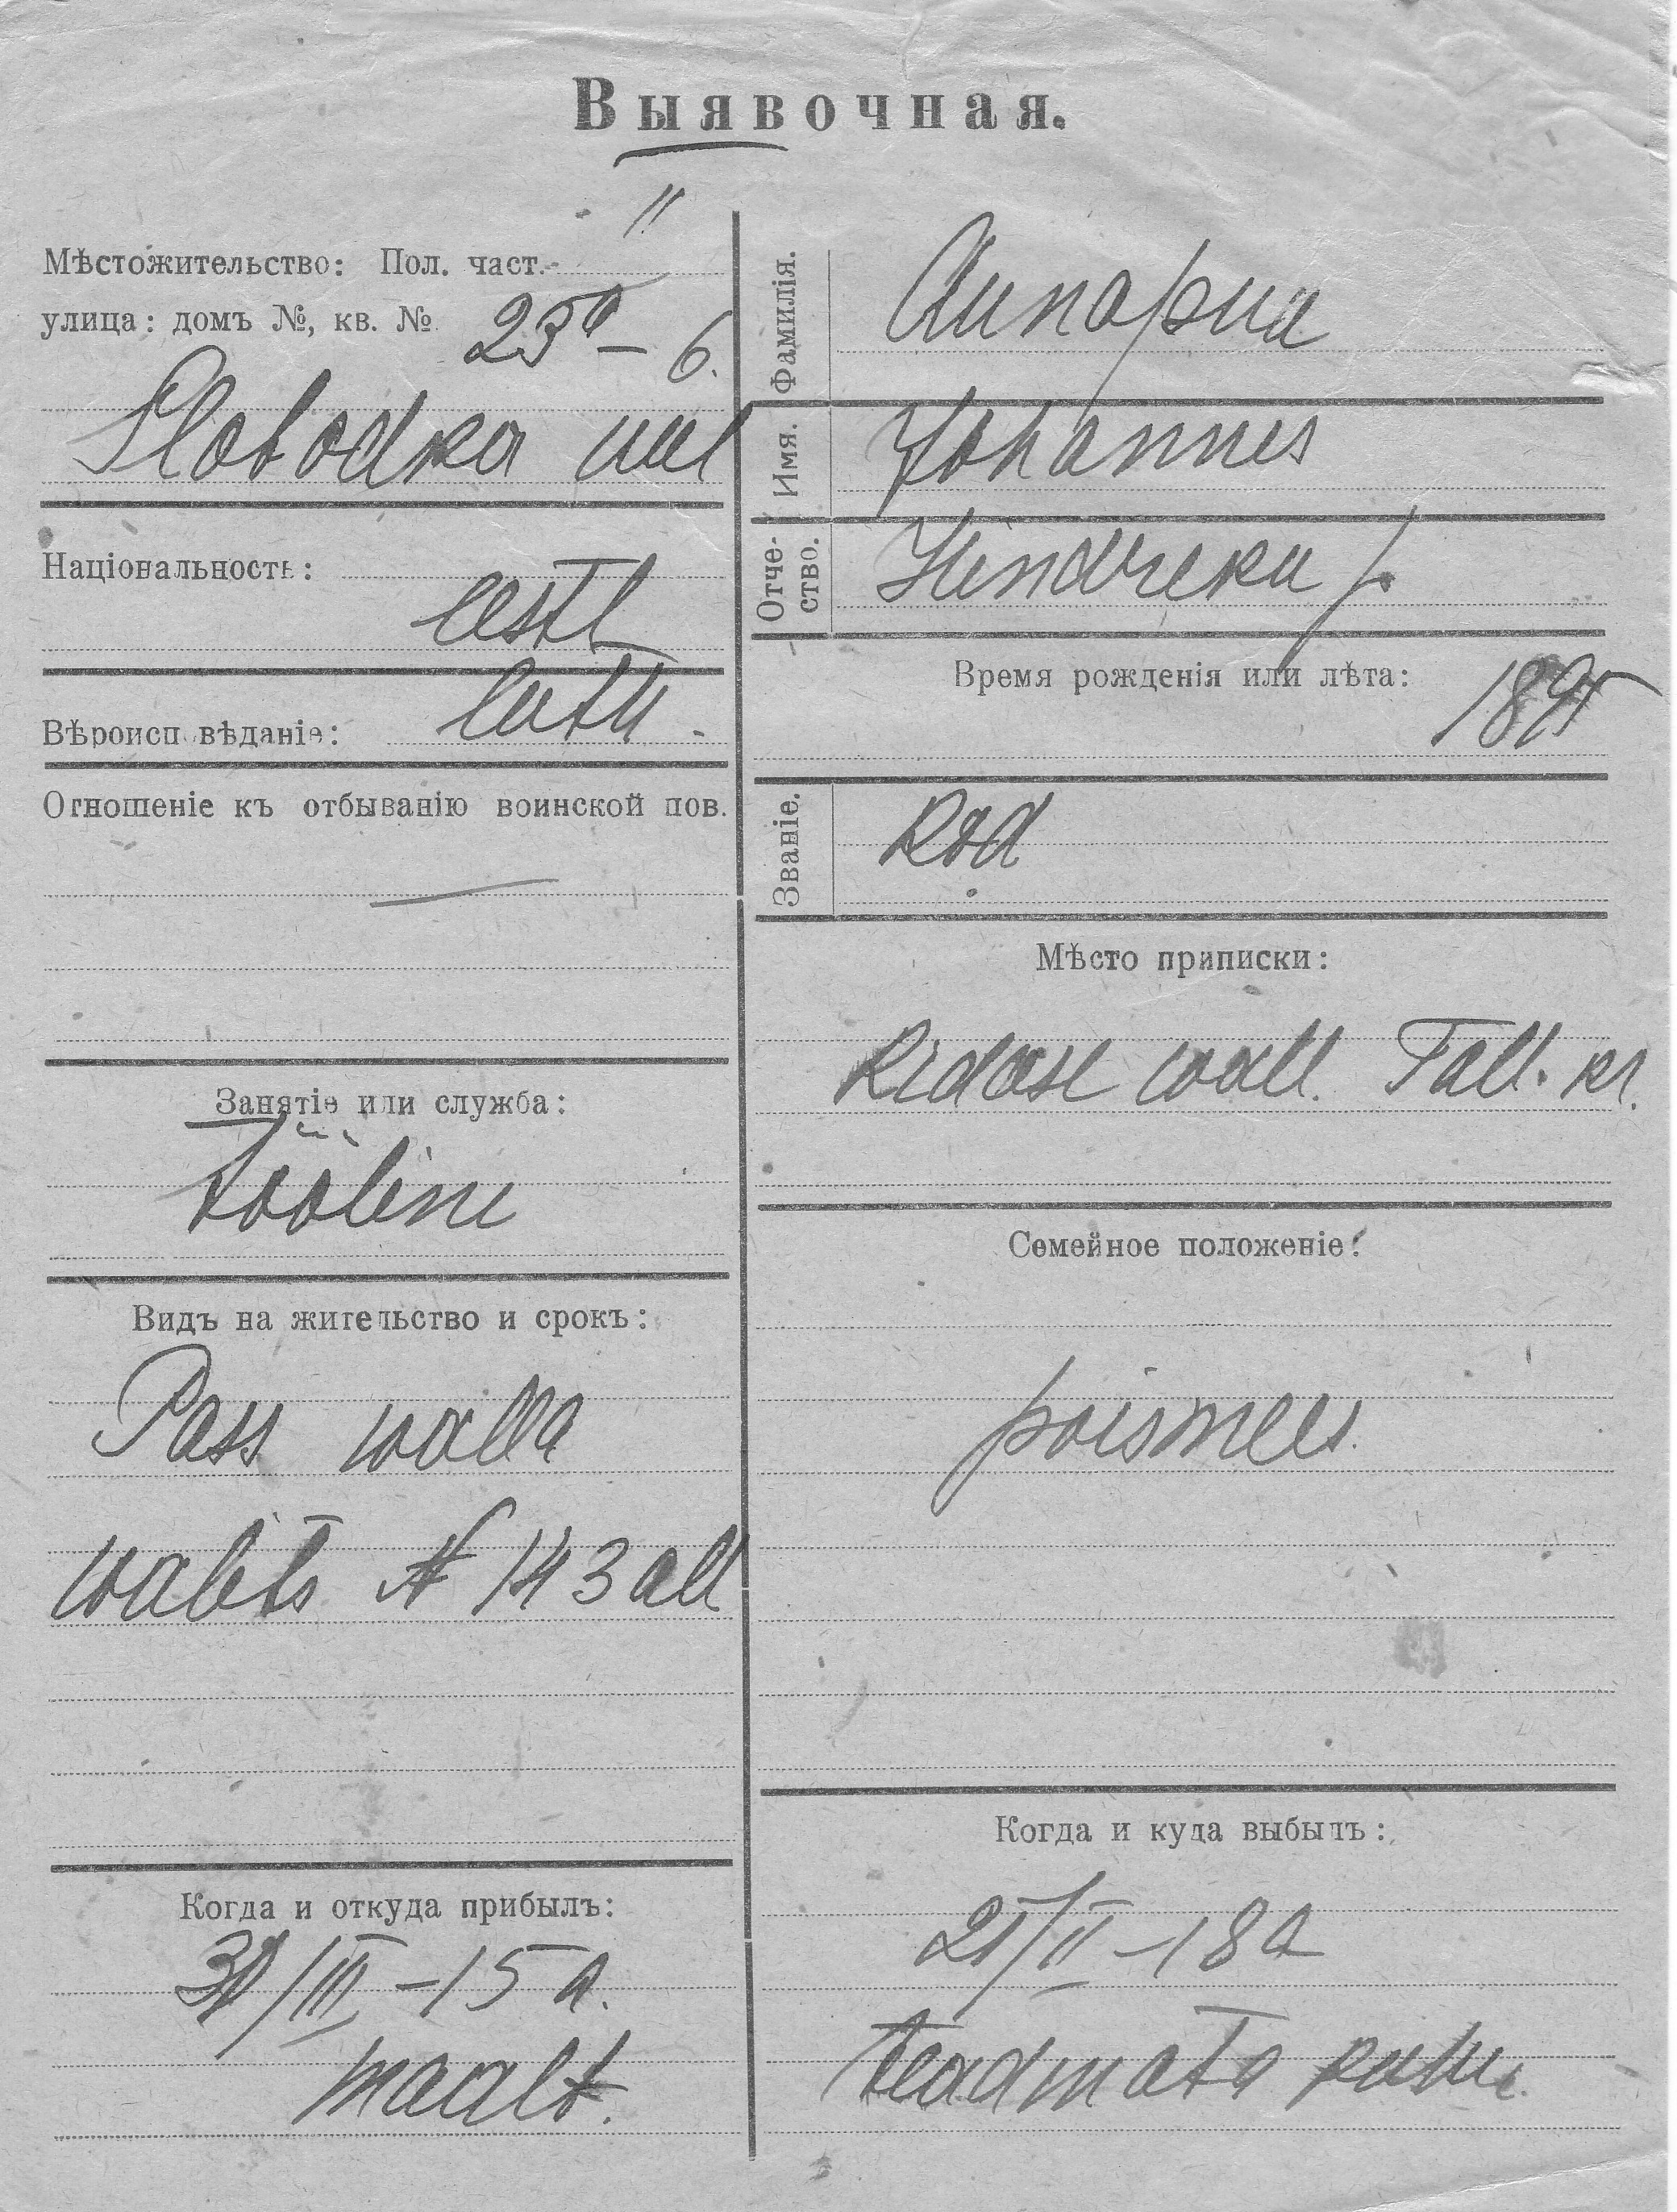 Выявочная.
Мѣстожительство: Пол. част.
улица: домъ №, кв. № 23a – 6.
Slobodka uul
Національность:
eestl
Вѣроисповѣданіе: luth.
Отношеніе къ отбыванію воинской пов.
Занятіе или служба:
tööline
Видъ на жительство и срокъ:
Pass walla
walits N 143 all
Когда и откуда прибылъ:
/III – 15 a.
maalt.
Фамилія.
Имя. Johannes
Отчество. Hindreku p.
Время рожденія или лѣта: 1895
Званіе.
Мѣсто приписки:
wall. Tall. kr.
Семейное положеніе:
poismees.
Когда и куда выбылъ:
21/II – 18 a
teadmata kuhu.